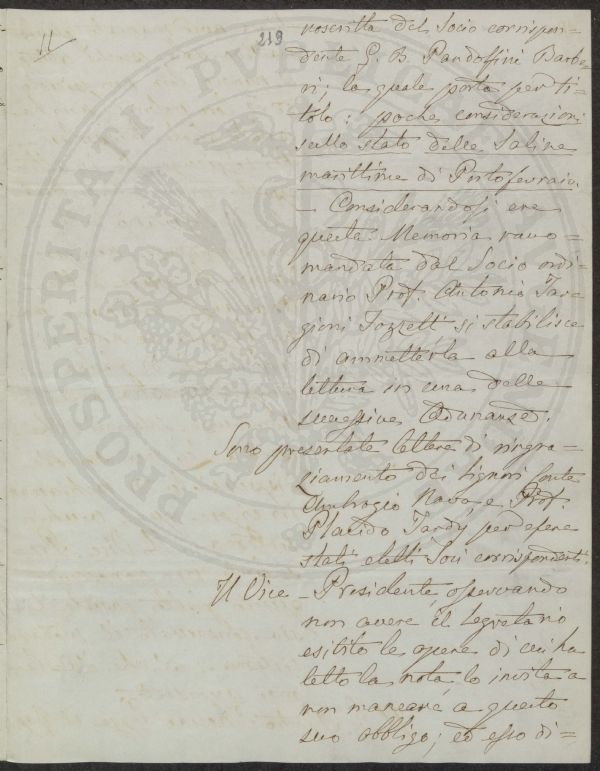 11
219
noscritta del Socio corrispon-
dente G. B. Pandolfini Barbe-
ri; la quale porta per ti-
tolo: poche considerazioni
sullo stato delle Saline
marittime di Portoferraio
– Considerandosi
questa Memoria racco=
mandata dal Socio ordi-
nario Prof. Antonio Tar-
gioni Tozzetti si stabilisce
di ammetterla alla
lettura in una delle
successive Adunanze.
Sono presentate lettere di ringra-
ziamento dei Signori Conte
Ambrogio Nava e Prof.
Placido Tardy per essere
stati eletti Soci corrispondenti.
Il Vice-Presidente, osservando
non avere il Segretario
esibito le opere di cui ha
letto la nota, lo invita a
non mancare a questo
suo obbligo; ed esso di=
PROSPERITATI PUBLICAE